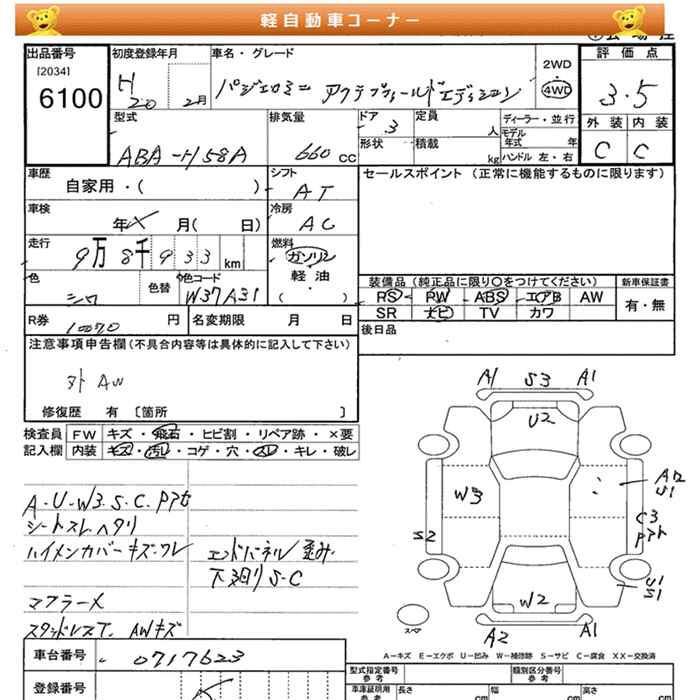 軽自動車コーナー
出品番号 初度登録年月 車名・グレード 2WD 評価点
[2034]
6100 H 20 2月 パジェロミニ アクティブフィールドエディション 4WD 3.5
型式 排気量 ドア 定員 ディーラー・並行 外装 内装
ABA-H58A 660cc 3 人 モデル年式 年 C C
形状 積載 kg ハンドル 左・右
車歴 シフト セールスポイント(正常に機能するものに限ります)
自家用・( ) AT
車検 冷房
年 月( 日) AC
走行 燃料
9万8千933km ガソリン
軽油
( )
色 色替 カラーコード
シロ W37A31
装備品(純正品に限り〇をつけてください) 新車保証書
RS PW ABS エアB AW 有・無
SR ナビ TV カワ
R券 10070円 名変期限 月 日 後日品
注意事項申告欄(不具合内容等は具体的に記入して下さい)
外AW
修復歴 有 [箇所 ]
検査員 FW キズ・飛石・ヒビ割・リペア跡・×要
記入欄 内装 キズ・汚レ・コゲ・穴・スレ・キレ・破レ
A1 S3 A1
U2
W3
A2
U1
S2
C3
U1
S1
W2
A2 A1
スペア
A・U・W3.S.C.
シートスレ.ヘタリ
ハイメンカバーキズ・ワレ エンドパネル歪み
下廻りS・C
マフラーメ
スタッドレスT. AWキズ
A-キズ E-エクボ U-凹み W-補修跡 S-サビ C-腐食 XX-交換済
車台番号 0717623
登録番号
型式指定番号 参考 類別区分番号 参考
車庫証明用 参考 長さ cm 幅 cm 高さ cm